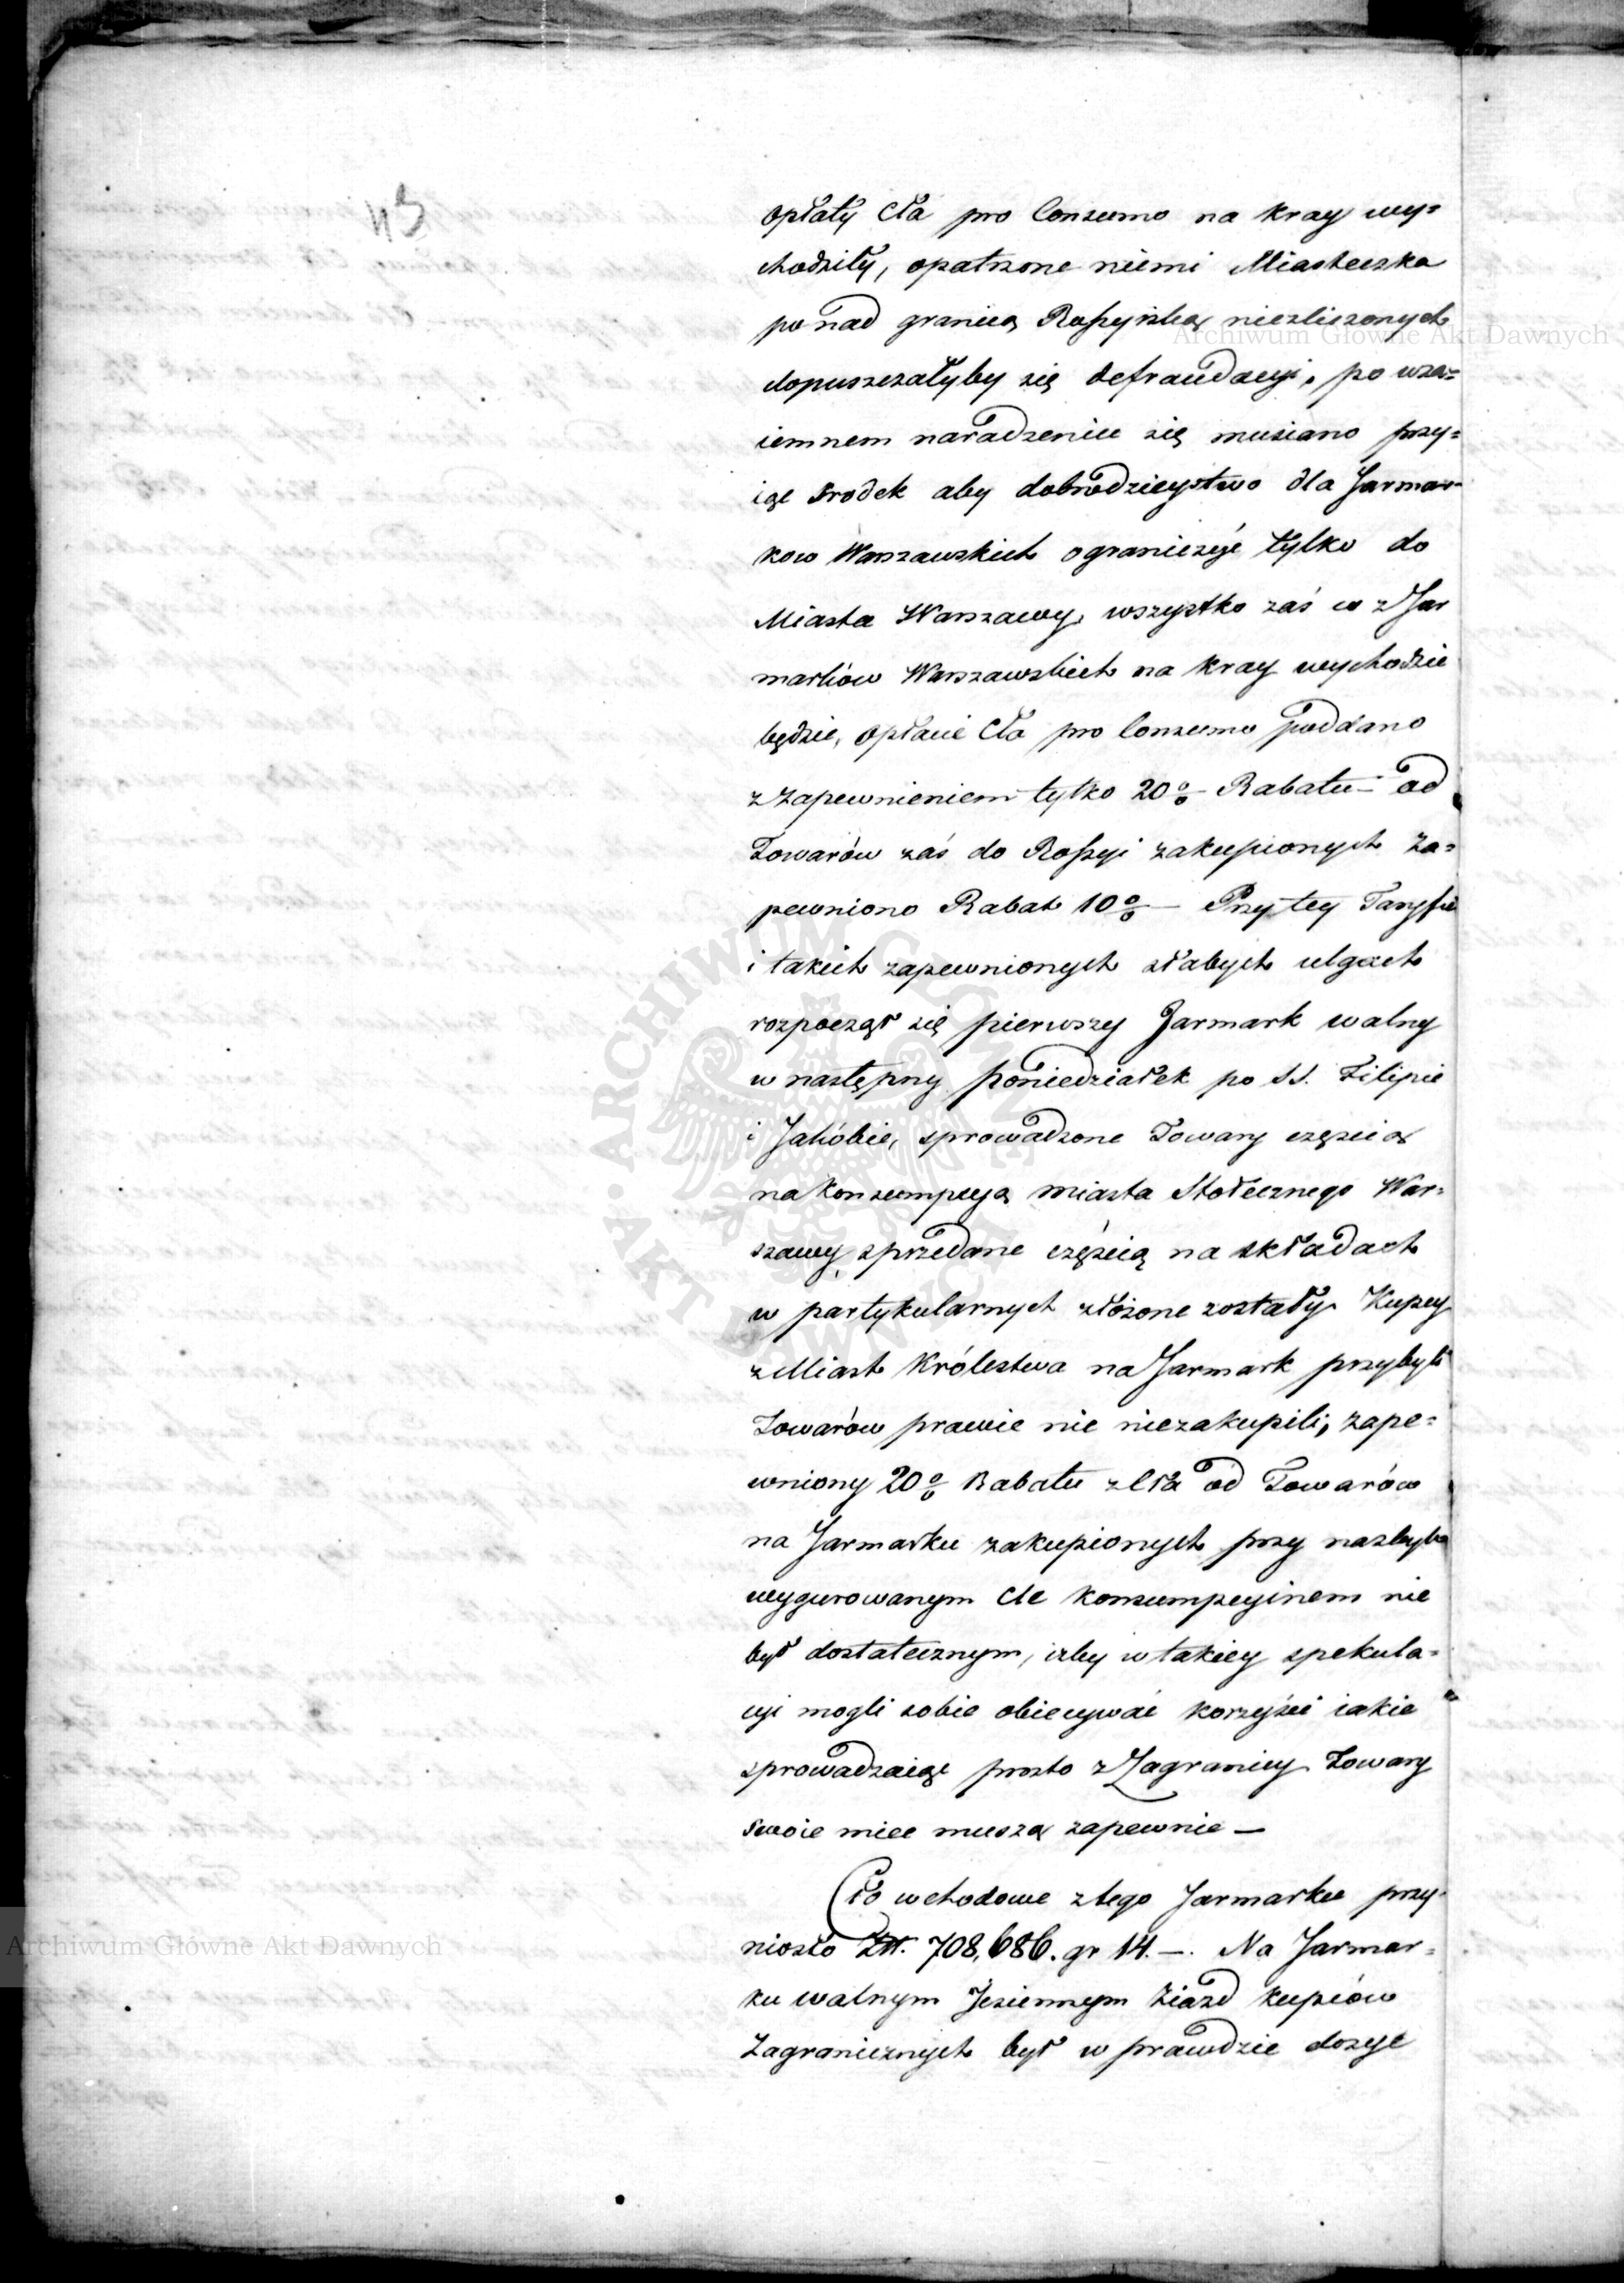 45
opłaty Cła pro Consumo na kray wy=
chodziły, opatrzone niemi Miasteczka
ponad granicą Rossyiską niezliczonych
dopuszczałyby się defraudacyi, po wza=
iemnem naradzeniu się musiano przy=
iąc srodek aby dobrodzieystwo dla Jarmar=
kow Warszawskich ograniczyć tylko do
Miasta Warszawy, wszystko zaś co z Jar
marków Warszawskich na kray wychodzic
będzie, opłacie Cła pro Consumo poddano
z zapewnieniem tylko 20% Rabatu — od
Towarów zaś do Rossyi zakupionych Za=
pewniono Rabat 10% — Przy tey Taryfie
i takich zapewnionych słabych ulgach
rozpoczął się pierwszy Jarmark walny
w następny Poniedziałek po SS. Filipie
i Jakóbie, sprowadzone Towary częscią
na Konsumpcyą miasta Stołecznego War=
szawy sprzedane częścią na składach
w partykularnych złożone zostały. Kupcy
z Miast Królestwa na Jarmark przybyli
Towarów prawie nic niezakupili, zape=
wniony 20% Rabatu z Cła od Towarów
na Jarmarku zakupionych przy nazbyt
wygurowanym Cle Konsumpcyinem nie
był dostatecznym, izby w takiey spekula=
cyi mogli sobie obiecywać korzyści iakie
sprowadzaiąc prosto z Zagranicy Towary
swoie miec muszą zapewnie —
Cło wchodowe z tego Jarmarku przy=
niosło Złł. 708,686. gr 14. —. Na Jarmar=
ku walnym Jesiennym Ziazd kupców
Zagranicznych był w prawdzie dosyc
Archiwum Główne Akt Dawnych
Archiwum Główne Akt Dawnych
ARCHIWUM GŁÓWNE AKT DAWNYCH